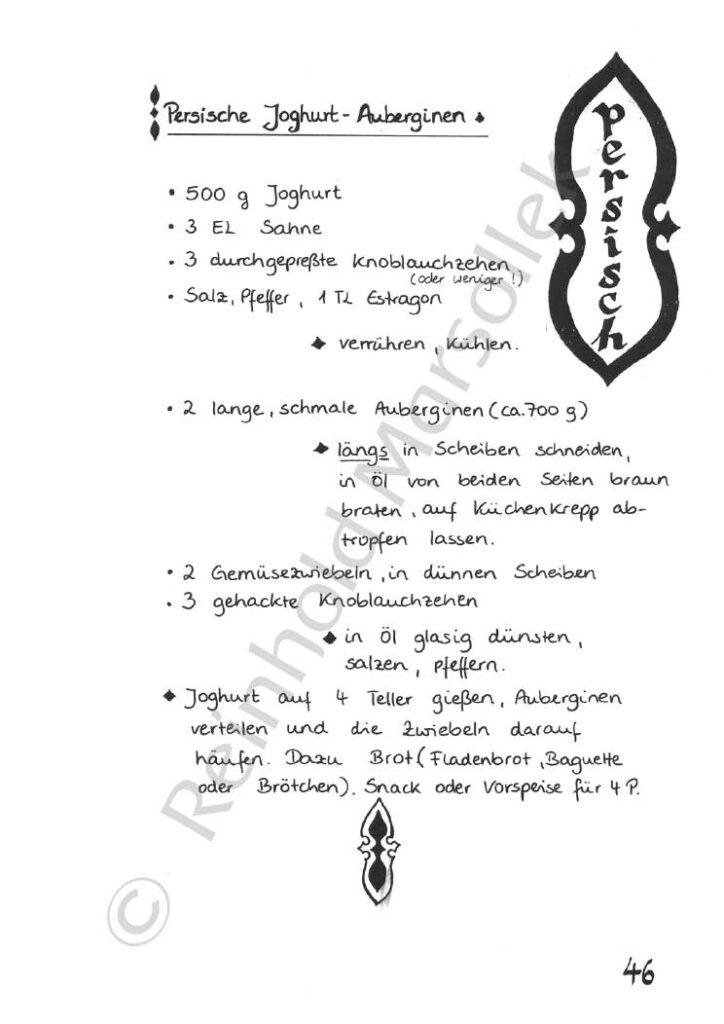 Persische Joghurt-Auberginen
persisch
• 500 g Joghurt
• 3 EL Sahne
• 3 durchgepreßte Knoblauchzehen
(oder weniger!)
• Salz, Pfeffer, 1 TL Estragon
verrühren, kühlen.
• 2 lange, schmale Auberginen (ca. 700 g)
längs in Scheiben schneiden,
in Öl von beiden Seiten braun
braten, auf Küchenkrepp ab-
tropfen lassen.
• 2 Gemüsezwiebeln, in dünnen Scheiben
• 3 gehackte Knoblauchzehen
in Öl glasig dünsten,
salzen, pfeffern.
Joghurt auf 4 Teller gießen, Auberginen
verteilen und die Zwiebeln darauf
häufen. Dazu Brot (Fladenbrot, Baguette
oder Brötchen). Snack oder Vorspeise für 4 P.
© Reinhold Marsollek
46